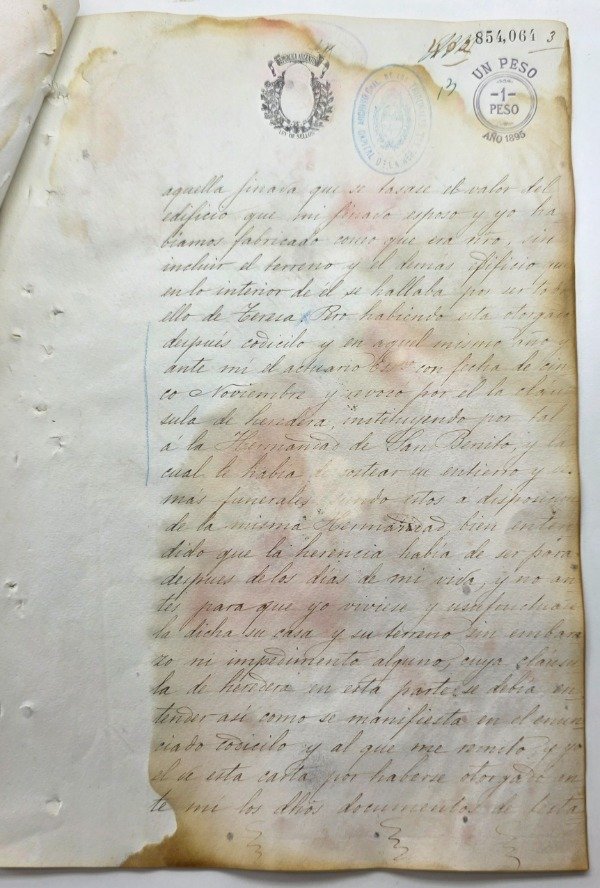 402
854,064 3
13
UN PESO
-1-
PESO
AÑO 1895
LEY DE SELLOS
aquella finada que se tasase el valor del
edificio que mi finado esposo y yo ha
biamos fabricado como que era nro, sin
incluir el terreno y el demas edificio que
en lo interior de el se hallaba por ser todo
ello de Teresa. Pero habiendo esta otorgado
despues codicilo y en aquel mismo año y
ante mi el actuario Essno con fecha de cin
co Noviembre y revoco por el la cláu
sula de heredera, instituyendo por tal
á la Hermandad de San Benito, y la
cual le habia de costear su entierro y de
mas funerales siendo estos a disposicion
de la misma Hermandad, bien enten
dido que la herencia habia de ser para
despues de los dias de mi vida, y no an
tes para que yo viviese y usufructuase
la dicha su casa y su terreno sin embara
zo ni impedimento alguno, cuya cláusu
la de heredera en esta parte se debia en
tender asi como se manifiesta en el enun
ciado codicilo y al que me remito, y yo
el de esta carta por haberse otorgado an
te mi los dhos documentos de testa